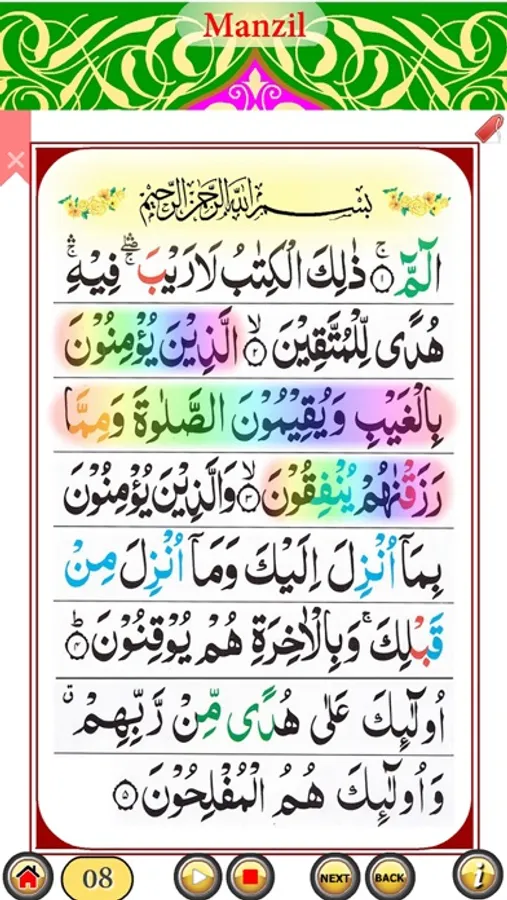 Manzil
بِسْمِ اللهِ الرَّحْمٰنِ الرَّحِيْمِ
الٓمّٓ ۚ﴿۱﴾ ذٰلِكَ الْكِتٰبُ لَا رَيْبَ ۛۖۚ فِيْهِ ۛۚ
هُدًى لِّلْمُتَّقِيْنَ ۙ﴿۲﴾ الَّذِيْنَ يُؤْمِنُوْنَ
بِالْغَيْبِ وَيُقِيْمُوْنَ الصَّلٰوةَ وَمِمَّا
رَزَقْنٰهُمْ يُنْفِقُوْنَ ۙ﴿۳﴾ وَالَّذِيْنَ يُؤْمِنُوْنَ
بِمَاۤ اُنْزِلَ اِلَيْكَ وَمَاۤ اُنْزِلَ مِنْ
قَبْلِكَ ۚ وَبِالْاٰخِرَةِ هُمْ يُوْقِنُوْنَ ؕ﴿۴﴾
اُولٰٓئِكَ عَلٰى هُدًى مِّنْ رَّبِّهِمْ ۗ
وَاُولٰٓئِكَ هُمُ الْمُفْلِحُوْنَ ﴿۵﴾
08
NEXT
BACK
i